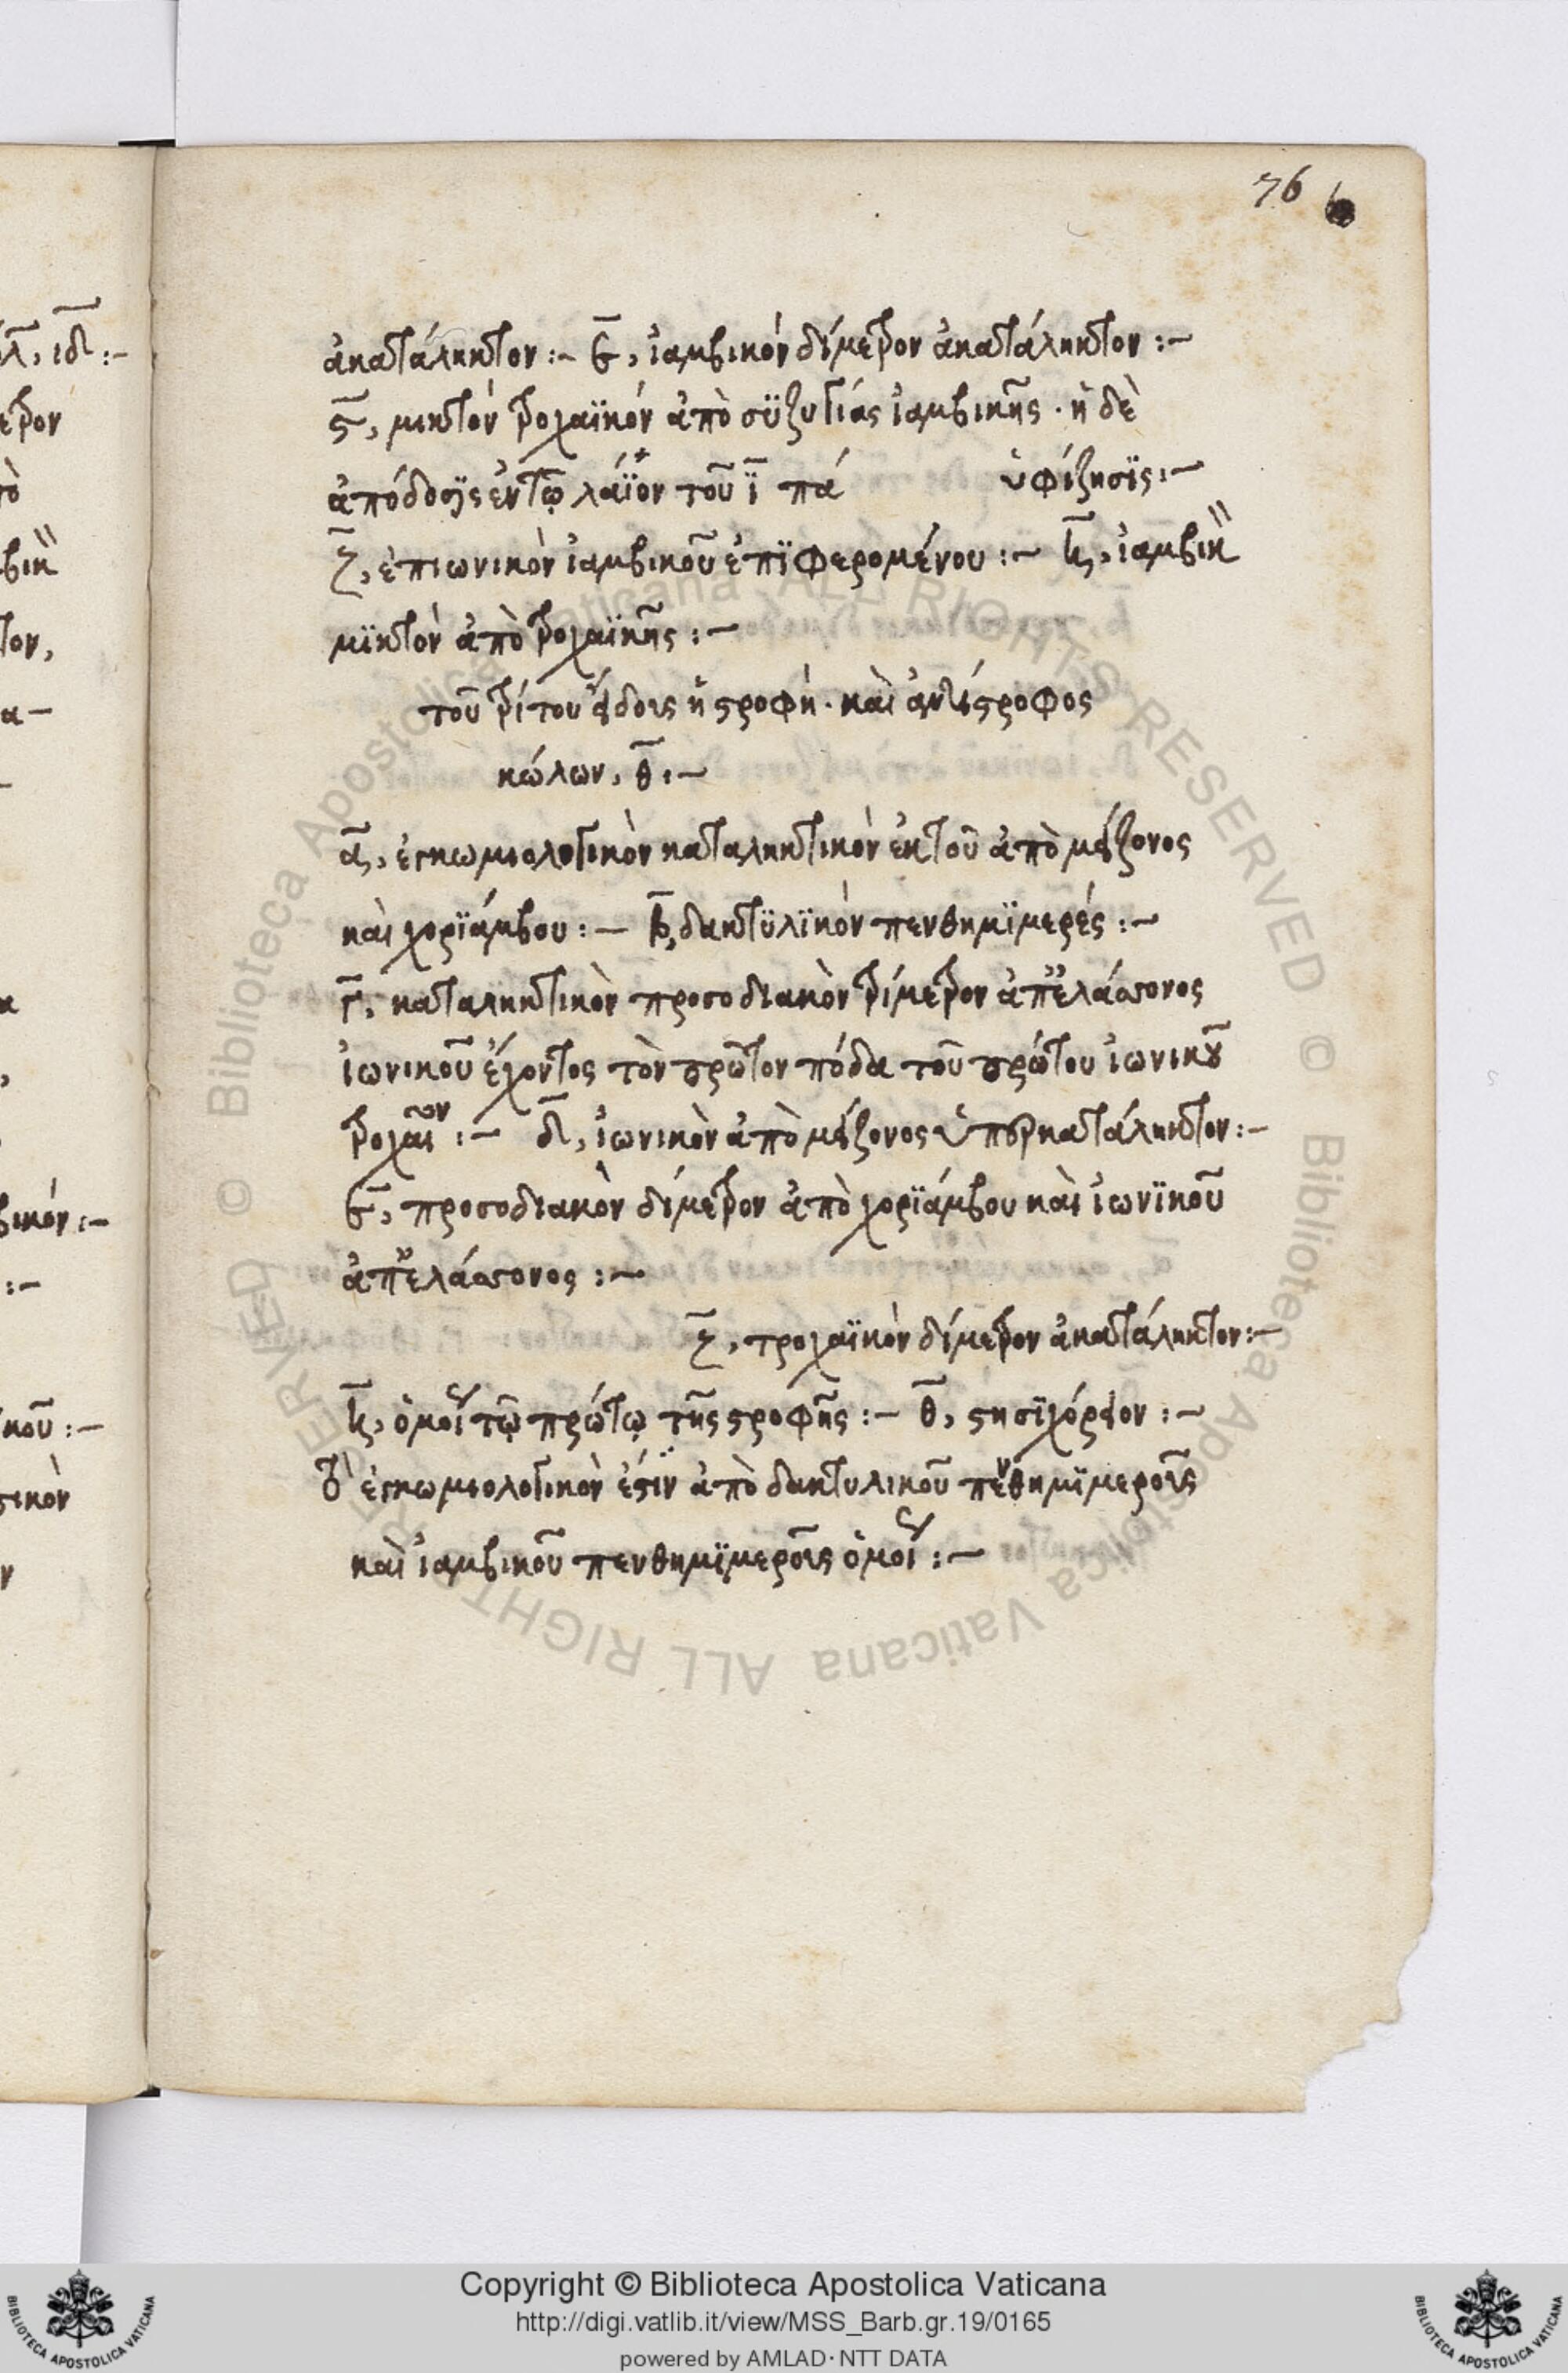 76
ἀκατάληκτον :- ε̅, ἰαμβικόν δίμετρον ἀκατάληκτον :-
ϛ̅, μικτόν τροχαϊκόν ἀπὸ σϋζυγίας ἰαμβικῆς · ἡ δὲ
ἀπόδοσϊς ἐν τῷ λάϊον τοῦ ϊ̅ πά ὑφίζησϊς :-
ζ̅, ἐπιωνικὸν ἰαμβικοῦ ἐπϊφερομένου :- η̅, ἰαμβικ
μϊκτὸν ἀπὸ τροχαϊκῆς :-
τοῦ τρίτου εἴδους ἡ στροφή · καὶ ἀντίστροφος
κώλων, θ̅ :-
α̅, ἐγκωμιολογικὸν καταληκτικὸν ἐκ τοῦ ἀπὸ μείζονος
καὶ χορϊάμβου :- β̅, δακτϋλϊκόν πενθημϊμερές :-
γ̅, καταληκτικὸν προσοδιακὸν τρίμετρον ἀπ' ἐλάσσονος
ἰωνικοῦ ἔχοντος τὸν πρῶτον πόδα τοῦ πρώτου ἰωνικοῦ
τροχαῖον :- δ̅, ἰωνικὸν ἀπὸ μείζονος ὑπερκατάληκτον :-
ε̅, προσοδιακὸν δίμετρον ἀπὸ χορϊάμβου καὶ ἰωνϊκοῦ
ἀπ' ἐλάσσονος :-
ζ̅, τροχαϊκὸν δίμετρον ἀκατάληκτον :-
η̅, ὁμοι τῷ πρώτῳ τῆς στροφῆς :- θ̅, στησϊχόρειον :-
ἐγκωμιολογικὸν ἐστϊν ἀπὸ δακτυλικοῦ πενθημϊμεροῦς
καὶ ἰαμβικοῦ πενθημϊμεροῦς ὁμοι :-
Copyright © Biblioteca Apostolica Vaticana
http://digi.vatlib.it/view/MSS_Barb.gr.19/0165
powered by AMLAD · NTT DATA